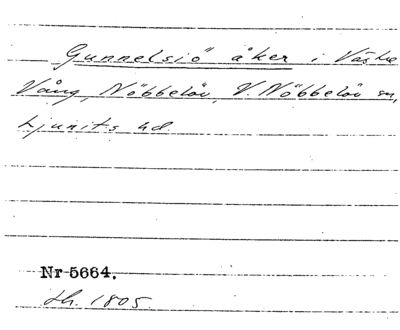 Gunnelsiö åker i Västre
Vång, Nöbbelöv, V. Nöbbelöv sn,
Ljunits hd.
Nr 5664.
Lh. 1805.